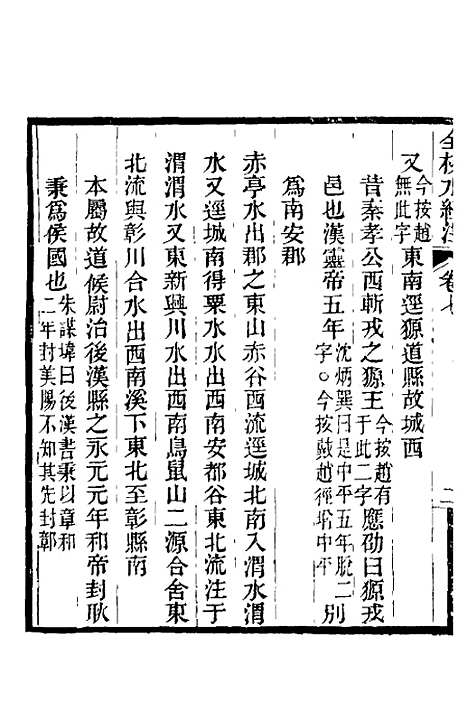 全校水經注 卷七 二
又今按趙無此字東南逕獂道縣故城西
昔秦孝公西斬戎之獂王今按趙有于此二字應劭曰獂戎
邑也漢靈帝五年沈炳巽曰是中平五年脫二字○今按戴趙徑增中平別
爲南安郡
赤亭水出郡之東山赤谷西流逕城北南入渭水渭
水又逕城南得粟水水出西南安都谷東北流注于
渭渭水又東新興川水出西南鳥鼠山二源合舍東
北流與彰川合水出西南溪下東北至彰縣南
本屬故道候尉治後漢縣之永元元年和帝封耿
秉爲侯國也朱謀㙔曰後漢書秉以章和二年封美陽不知其先封彰